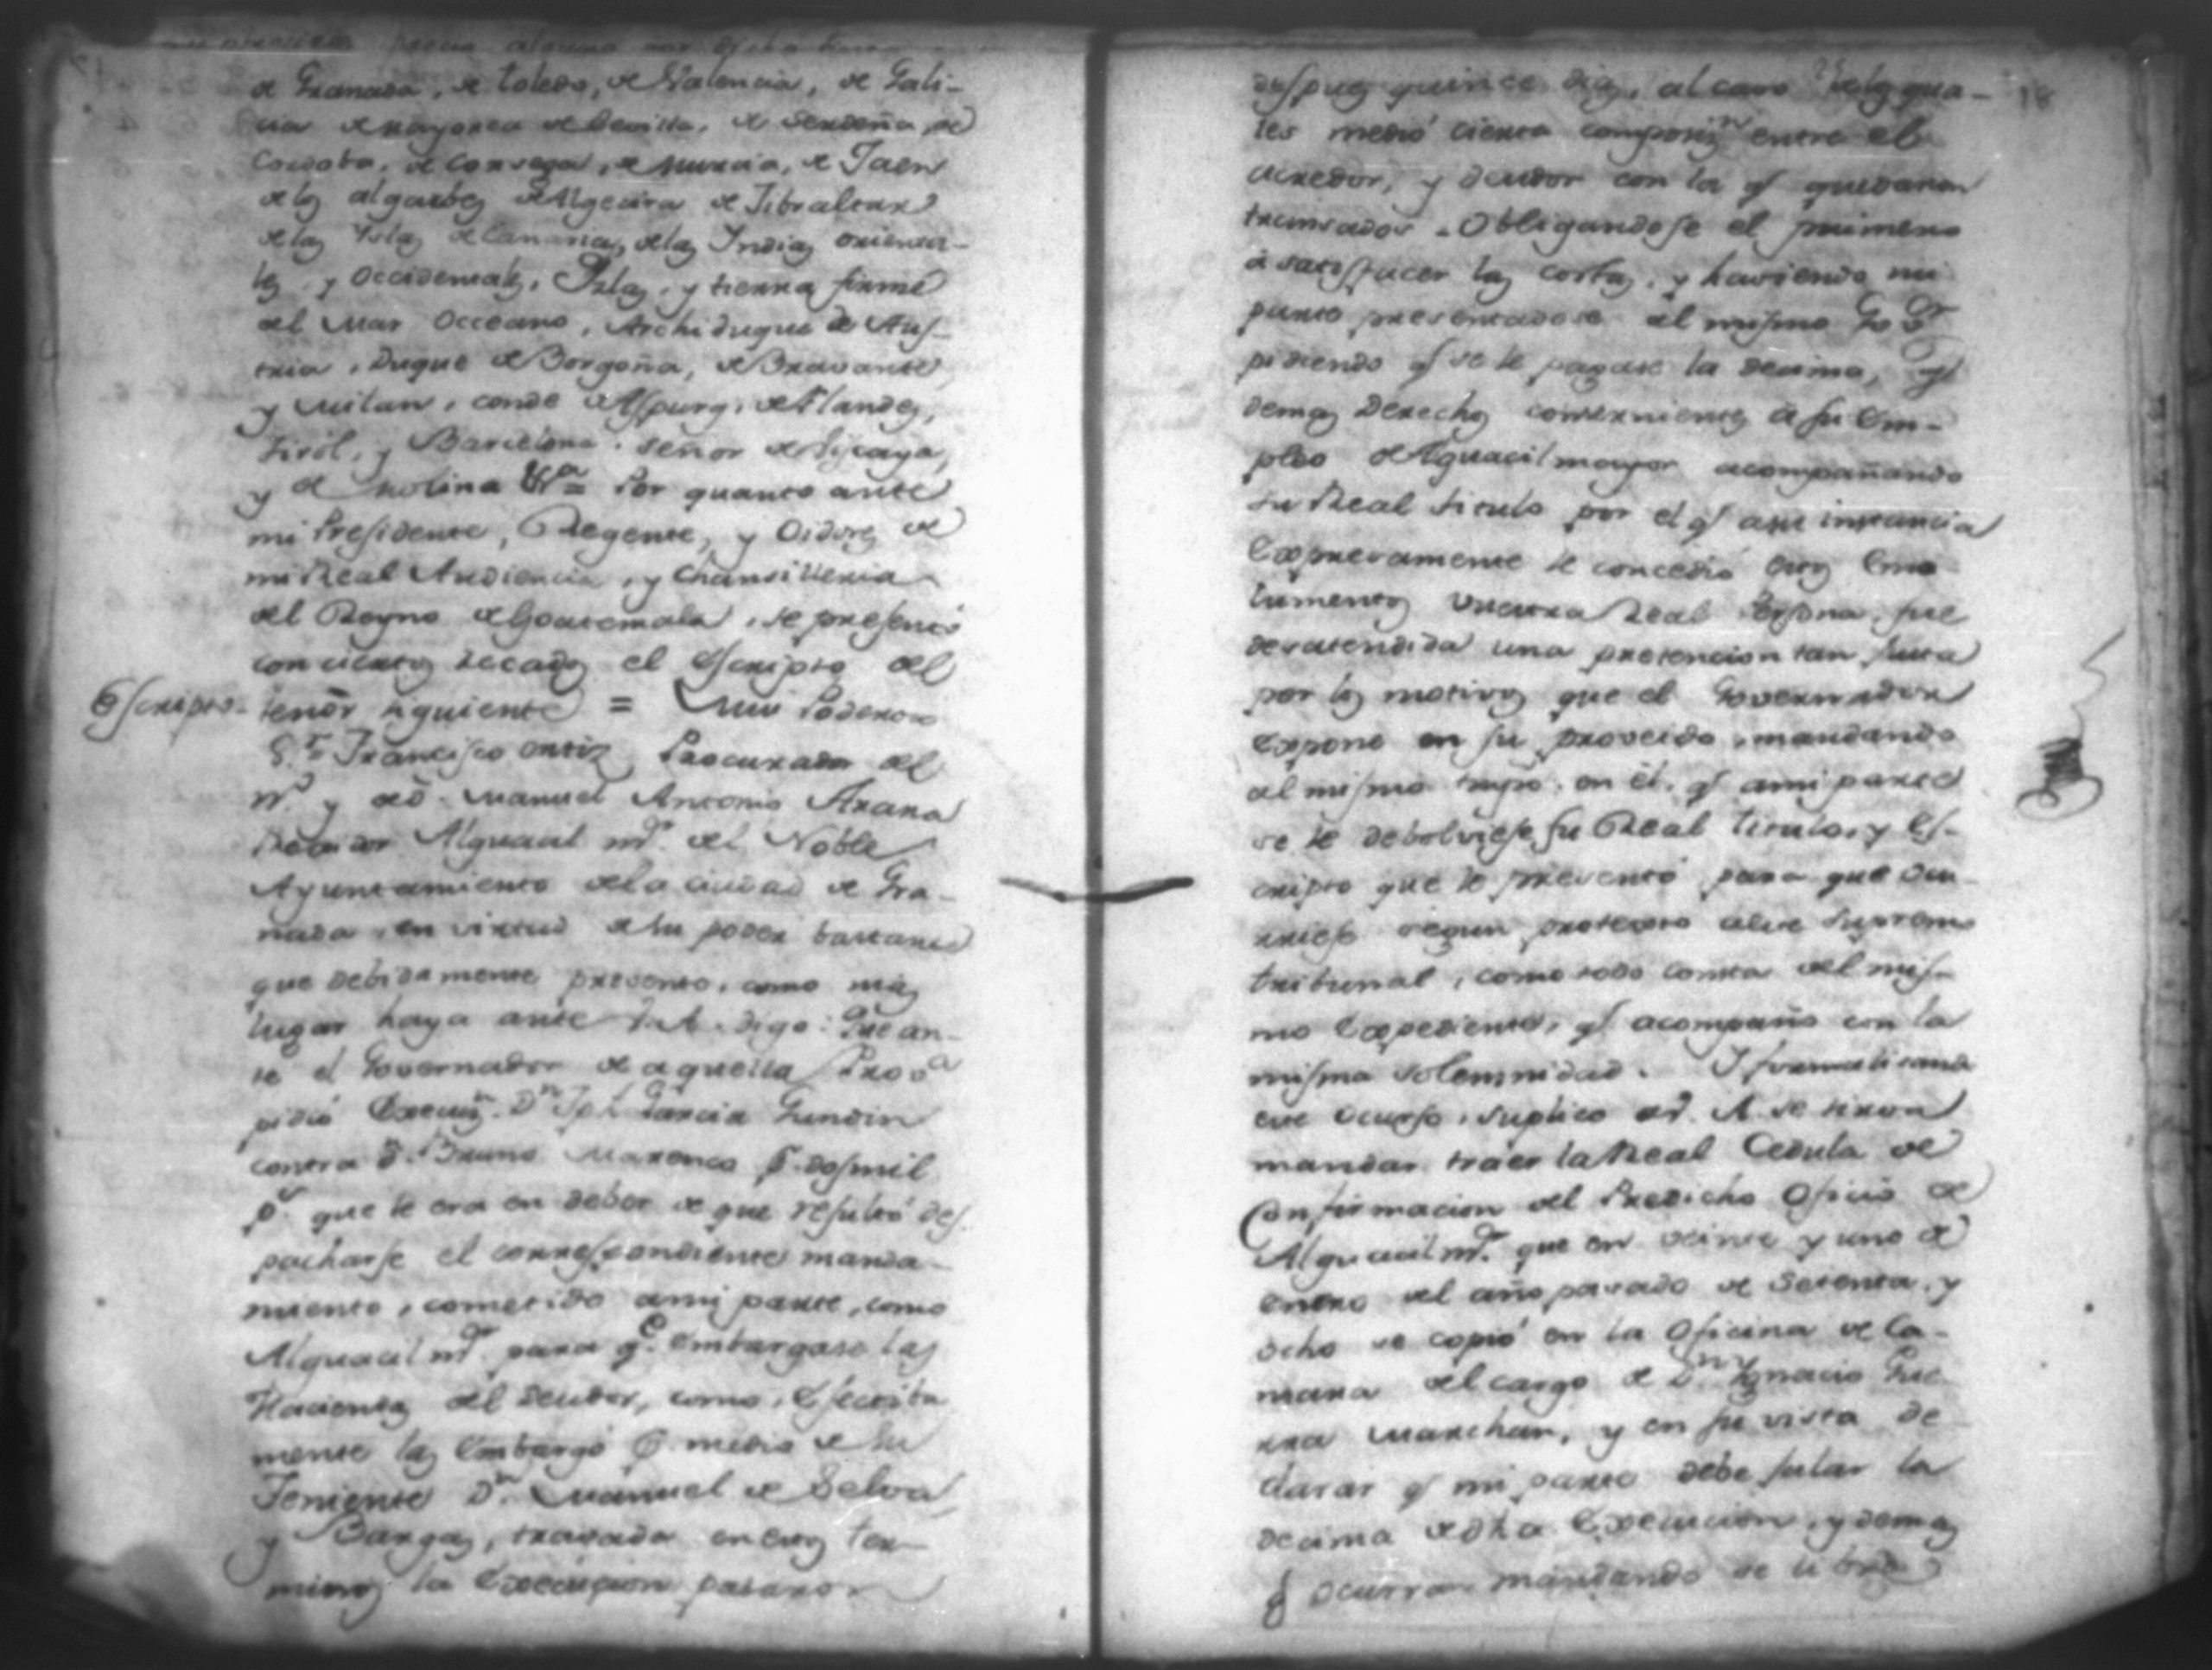 de Granada, de toledo, de Valencia, de Gali-
cia de mayorca de Sevilla, de Serdeña, de
Cordoba, de Corsega, de Murcia, de Jaen
de los algarbes de Algecira de Jibraltar
de las Yslas de Canaria, de las Indias orienta-
les, y occidentales, Yslas, y tierra firme
del Mar Occeano, Archiduque de Aus-
tria, Duque de Borgoña, de Bravante,
y Milan, conde de Aspurg, de Flandes,
tirol, y Barcelona. señor de Viscaya,
y de Molina &a = Por quanto ante
mi Presidente, Regente, y Oidores de
mi Real Audiencia, y Chansilleria
del Reyno de Goatemala, se presentó
con ciertos recados el escripto del
Escripto- tenòr siguiente = Mui Poderoso
S.r Francisco ortiz Procurador del
nº y de dⁿ. Manuel Antonio Arana
Rexidor Alguacil mr. del Noble
Ayuntamiento de la ciudad de Gra-
nada, en virtud de su poder bastante
que debidamente presento, como mas
lugar haya ante V.A. digo: Que an-
te el Governador de aquella Prova
pidió Execuzn. Dn Jph Garcia Gundin
contra d. Bruno Marenco p. dosmil
ps. que le era en deber de que resultó des-
pacharse el correspondiente manda-
miento, cometido a mi parte, como
Alguacil mr. para qe. embargase las
Haciendas del deudor, como efectiba
mente las embargó p. medio de su
Teniente Dn. Manuel de Selva
y Bargas, travada en esos ter-
minos la Execucion pasaron
despues quince dias, al cavo de los qua-
les medió cierta composizn entre el
acredor, y deudor con la q quedaron
transados. Obligandose el primero
à satisfacer las costas, y haviendo mi
parte presentadose al mismo Govor
pidiendo q se le pagase la decima, y
demas Derechos concernientes à su Em-
pleo de Alguacil mayor acompañando
su Real titulo por el q a su instancia
Expresamente le concedió esos Emo-
lumentos Vuestra Real Persona, fue
desatendida una pretencion tan justa
por los motivos que el Governador
Expone en su proveido, mandando
al mismo tmpo. en él, q a mi parte
se le debolviese su Real titulo, y Es-
cripto que le presentó para que ocu-
rriese segun protexto a este Supremo
tribunal, como todo consta del mis-
mo Expediente, q acompaño con la
misma solemnidad. Y formalisando
este ocurso, suplico a V. A. se sirva
mandar traer la Real Cedula de
Confirmacion del Predicho Oficio de
Alguacil mr. que en veinte y uno de
Enero del año pasado de Setenta, y
ocho se copió en la Oficina de Ca-
mara del cargo de Dn Ygnacio Gue-
rra Marchan, y en su vista De-
clarar q mi parte debe jalar la
decima de dha Execucion, y demas
q ocurran mandando se libre